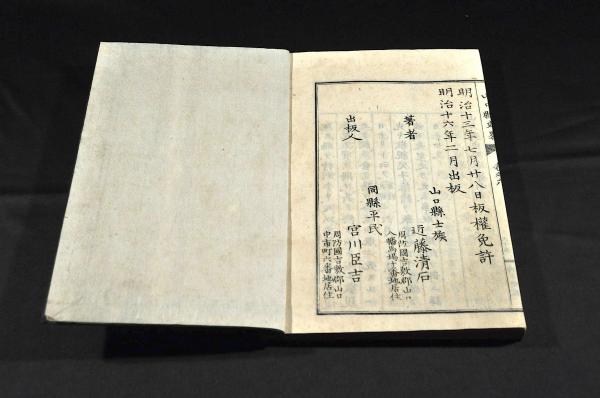 明治十三年七月廿八日板權免許
明治十六年二月出板
山口縣士族
著者
近藤清石
周防國吉敷郡山口
八幡馬場十番地居住
同縣平民
出板人
宮川臣吉
周防國吉敷郡山口
中市町六番地居住